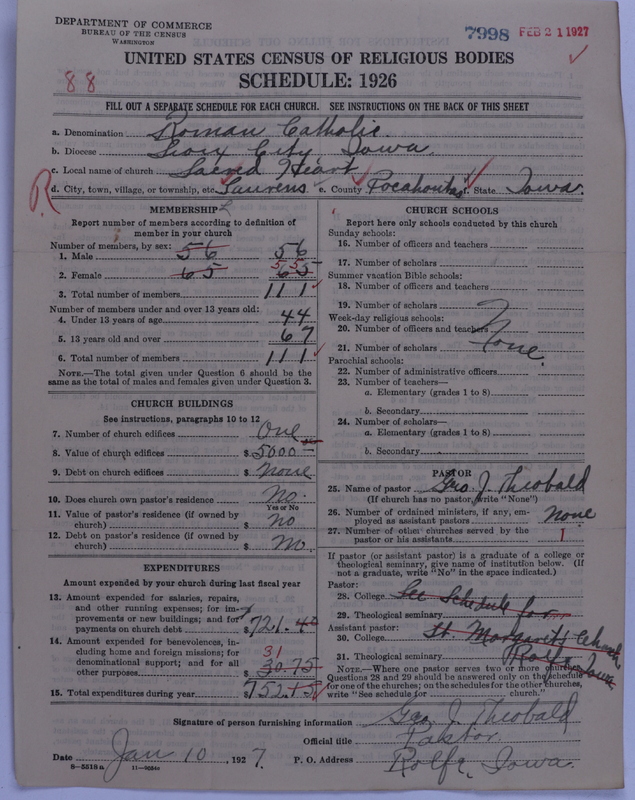 DEPARTMENT OF COMMERCE
BUREAU OF THE CENSUS
WASHINGTON
7998 FEB 21 1927
UNITED STATES CENSUS OF RELIGIOUS BODIES
88
SCHEDULE: 1926
FILL OUT A SEPARATE SCHEDULE FOR EACH CHURCH. SEE INSTRUCTIONS ON THE BACK OF THIS SHEET
a. Denomination Roman Catholic
b. Diocese Sioux City Iowa
c. Local name of church Sacred Heart
R
d. City, town, village, or township, etc. Laurens e. County Pocahontas f. State Iowa
MEMBERSHIP
Report number of members according to definition of
member in your church
Number of members, by sex:
1. Male 56 56
2. Female 65 55
3. Total number of members 111
Number of members under and over 13 years old:
4. Under 13 years of age 44
5. 13 years old and over 67
6. Total number of members 111
NOTE.—The total given under Question 6 should be the
same as the total of males and females given under Question 3.
CHURCH BUILDINGS
See instructions, paragraphs 10 to 12
7. Number of church edifices One
8. Value of church edifices $ 5000
9. Debt on church edifices $ None
10. Does church own pastor's residence No.
Yes or No
11. Value of pastor's residence (if owned by
church) $ No
12. Debt on pastor's residence (if owned by
church) $ No.
EXPENDITURES
Amount expended by your church during last fiscal year
13. Amount expended for salaries, repairs,
and other running expenses; for im-
provements or new buildings; and for
payments on church debt $ 721.40
14. Amount expended for benevolences, in-
cluding home and foreign missions; for
denominational support; and for all
other purposes $ 31 30.75
15. Total expenditures during year $ 752.15
CHURCH SCHOOLS
Report here only schools conducted by this church
Sunday schools:
16. Number of officers and teachers
17. Number of scholars
Summer vacation Bible schools:
18. Number of officers and teachers
19. Number of scholars
Week-day religious schools:
20. Number of officers and teachers
21. Number of scholars None.
Parochial schools:
22. Number of administrative officers
23. Number of teachers—
a. Elementary (grades 1 to 8)
b. Secondary
24. Number of scholars—
a. Elementary (grades 1 to 8)
b. Secondary
PASTOR
25. Name of pastor Geo. J. Theobald
(If church has no pastor, write "None")
26. Number of ordained ministers, if any, em-
ployed as assistant pastors None
27. Number of other churches served by the
pastor or his assistants 1
If pastor (or assistant pastor) is a graduate of a college or
theological seminary, give name of institution below. (If
not a graduate, write "No" in the space indicated.)
Pastor:
28. College See Schedule for
29. Theological seminary
Assistant pastor:
30. College St. Margarets Church
31. Theological seminary Rolfe Iowa
NOTE.—Where one pastor serves two or more churches,
Questions 28 and 29 should be answered only on the schedule
for one of the churches; on the schedules for the other churches,
write "See schedule for church."
Signature of person furnishing information Geo. J. Theobald
Official title Pastor
Date Jan 10, 1927. P. O. Address Rolfe, Iowa.
8-5518a